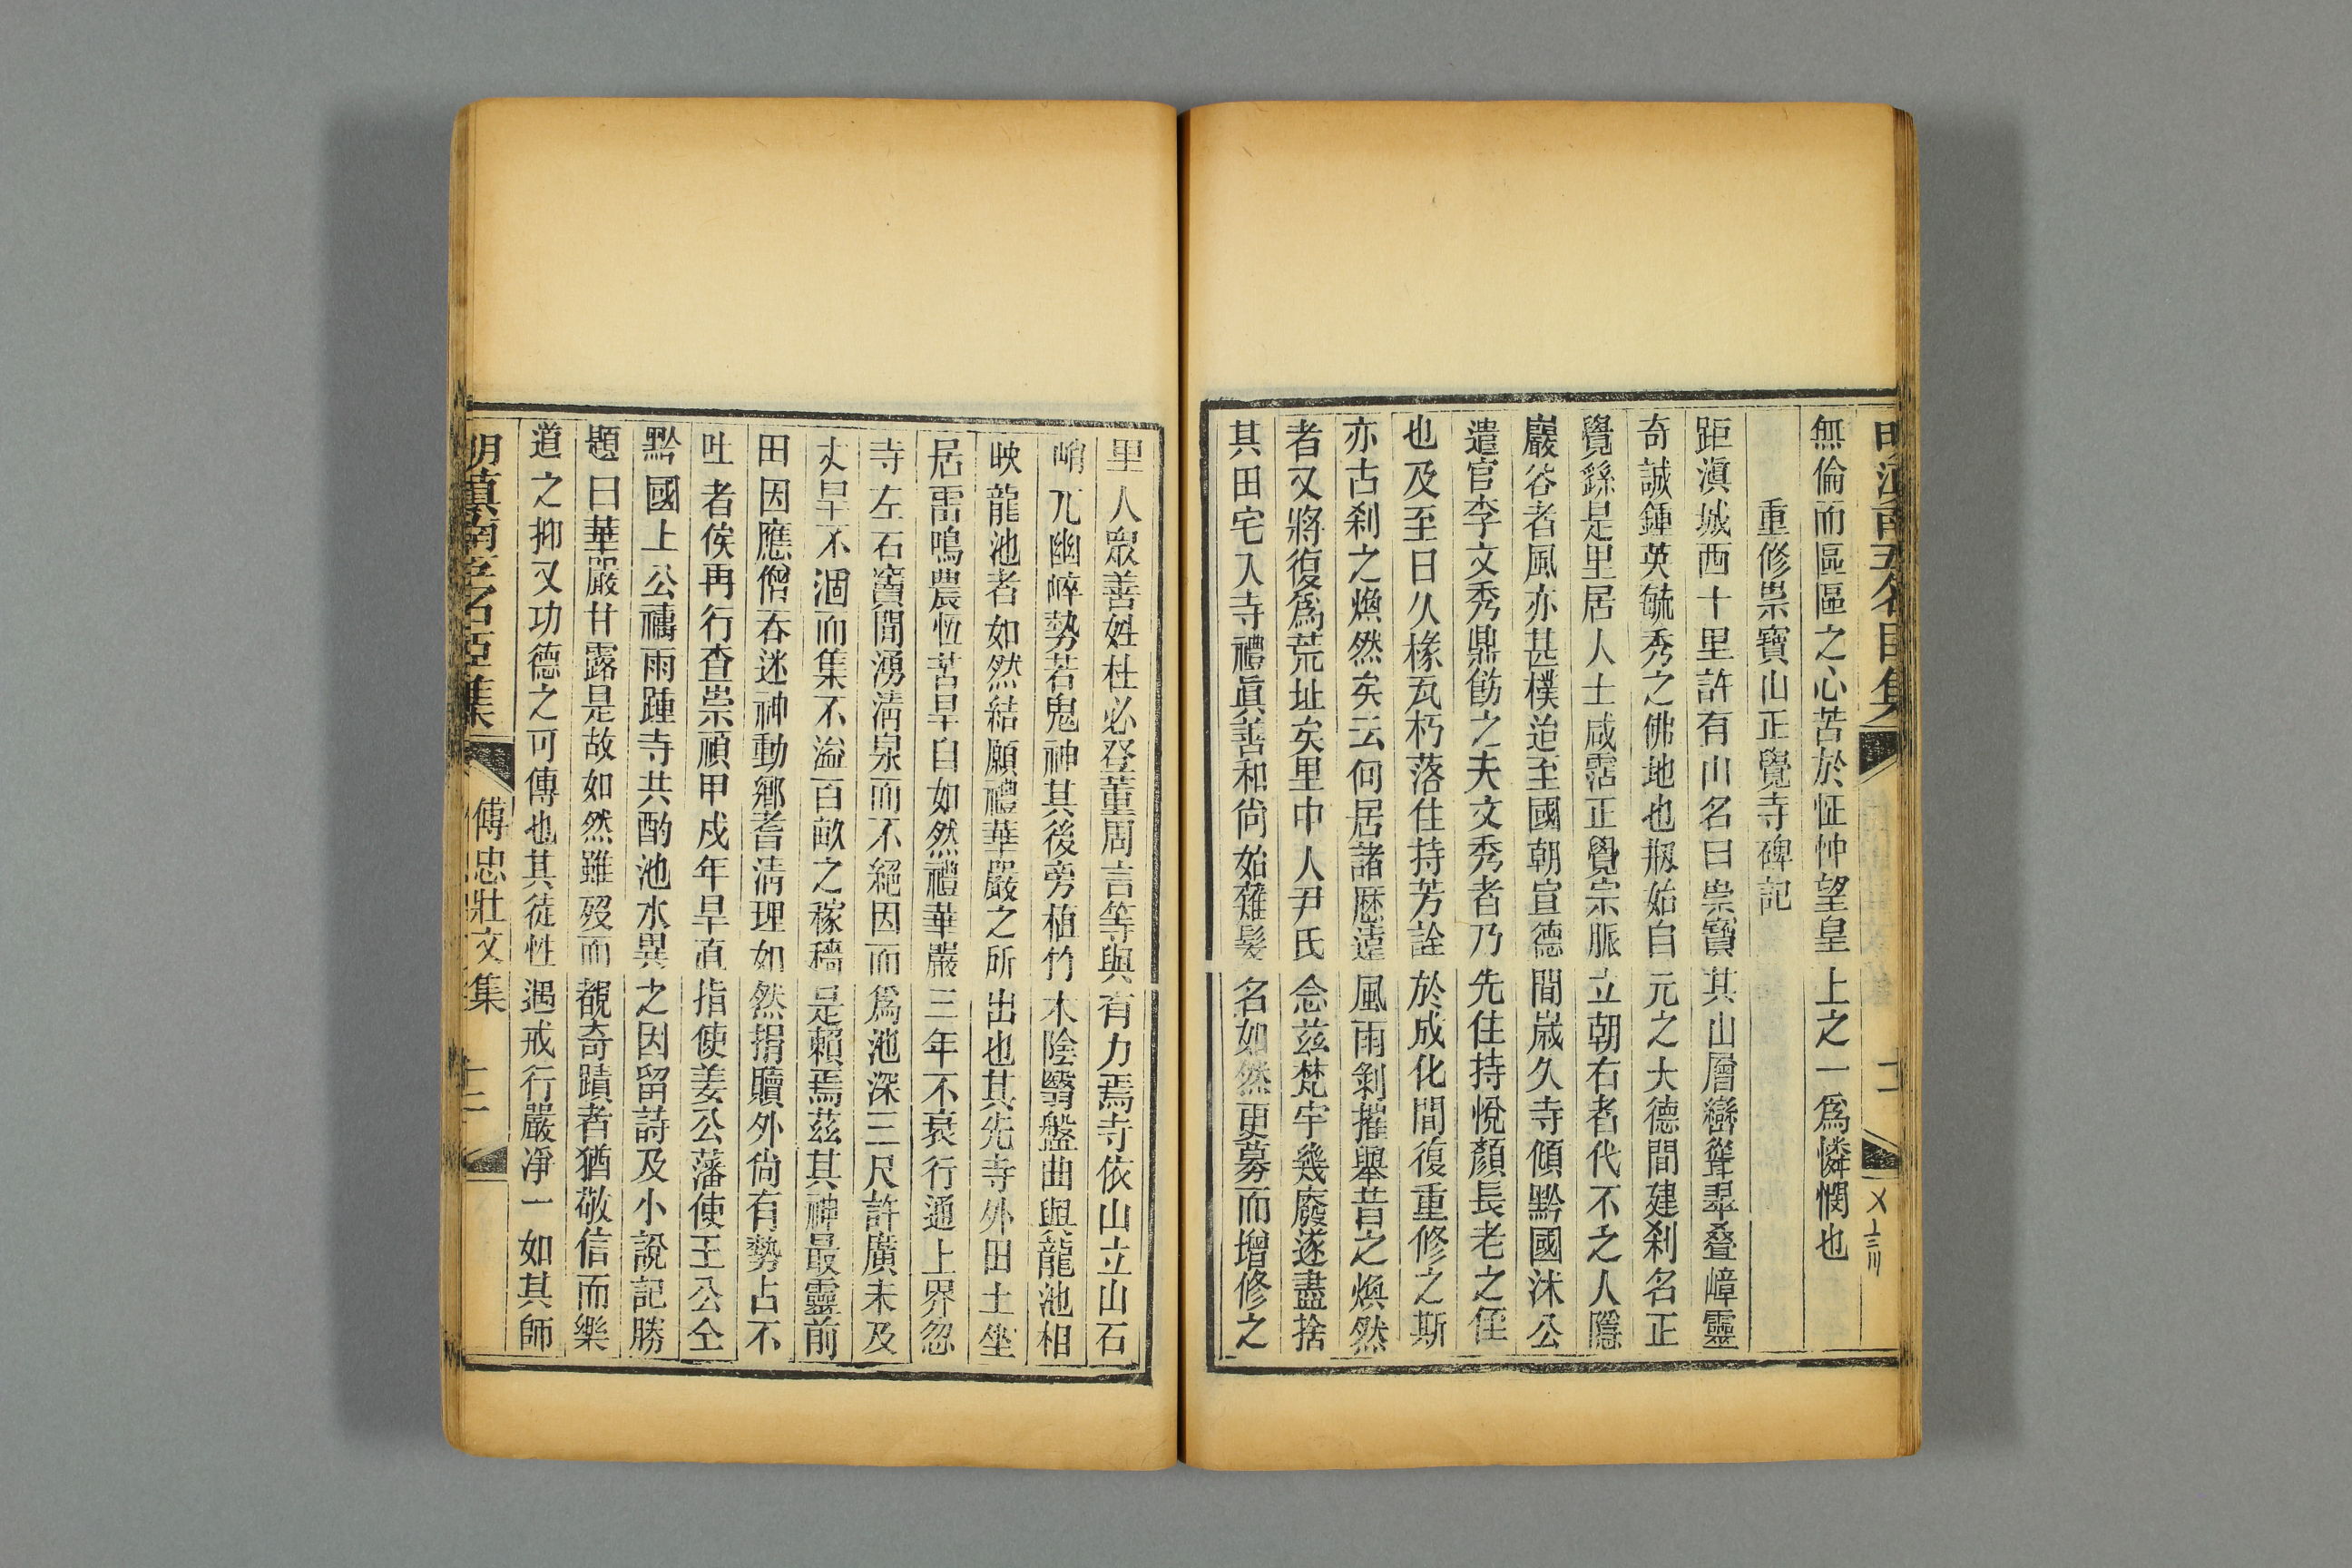 無倫而區區之心苦於怔忡望皇上之一爲憐憫也
重修崇寶山正覺寺碑記
距滇城西十里許有山名曰崇寶其山層巒聳翠叠嶂靈
奇誠鍾英毓秀之佛地也刱始自元之大德間建刹名正
覺繇是里居人士咸霑正覺宗脈立朝右者代不乏人隱
巖谷者風亦甚樸迨至國朝宣德間嵗久寺傾黔國沐公
遣官李文秀鼎飭之夫文秀者乃先住持悅顏長老之侄
也及至日久椽瓦朽落住持芳詮於成化間復重修之斯
亦古刹之煥然矣云何居諸厯遠風雨剝摧舉昔之煥然
者又將復爲荒址矣里中人尹氏念茲梵宇幾廢遂盡捨
其田宅入寺禮眞善和尚始薙髮名如然更募而增修之
里人眾善姓杜必登董周言等與有力焉寺依山立山石
峭兀幽崪勢若鬼神其後旁植竹木陰翳盤曲與龍池相
映龍池者如然結願禮華嚴之所出也其先寺外田土坐
居雷鳴農恆苦旱自如然禮華嚴三年不衰行通上界忽
寺左石竇間湧淸泉而不絕因而爲池深三尺許廣未及
丈旱不涸而集不溢百畝之稼穡是賴焉茲其神最靈前
田因應僧吞迷神動鄉耆淸理如然捐贖外尙有勢占不
吐者俟再行查崇禎甲戍年旱直指使姜公藩使王公仝
黔國上公禱雨踵寺共酌池水異之因留詩及小說記勝
題曰華嚴甘露是故如然雖歿而覩奇蹟者猶敬信而樂
道之抑又功德之可傳也其徒性遇戒行嚴淨一如其師
明滇南五名臣集 傅忠壯文集 十二